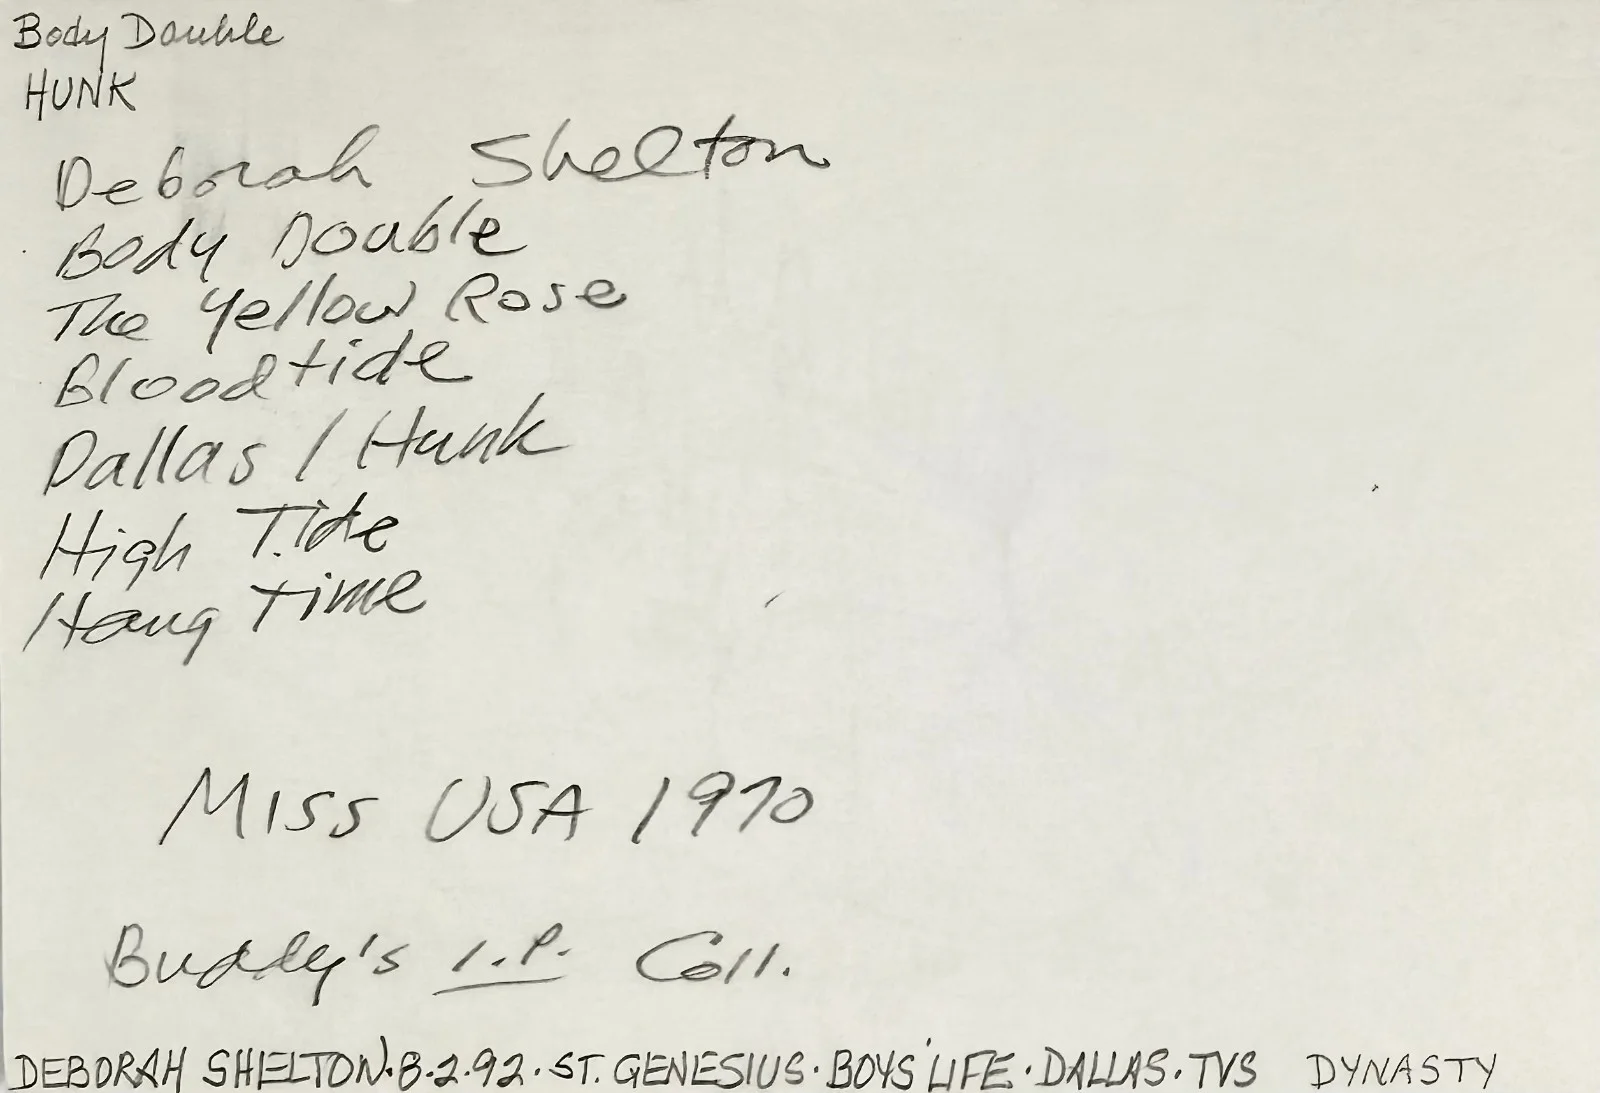 Body Double
HUNK
Deborah Shelton
Body Double
The Yellow Rose
Bloodtide
Dallas / Hunk
High Tide
Hang Time
Miss USA 1970
Buddy's I.P. Coll.
DEBORAH SHELTON·8·2·92·ST. GENESIUS·BOYS' LIFE·DALLAS·TVS DYNASTY